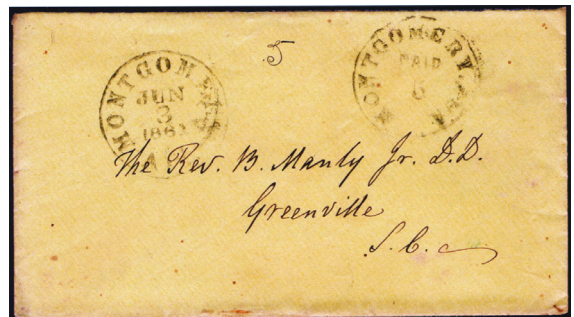 5
MONTGOMERY
JUN
3
186
MONTGOMERY, ALA
PAID
5
The Rev. B. Manly Jr. D.D.
Greenville
S.C.